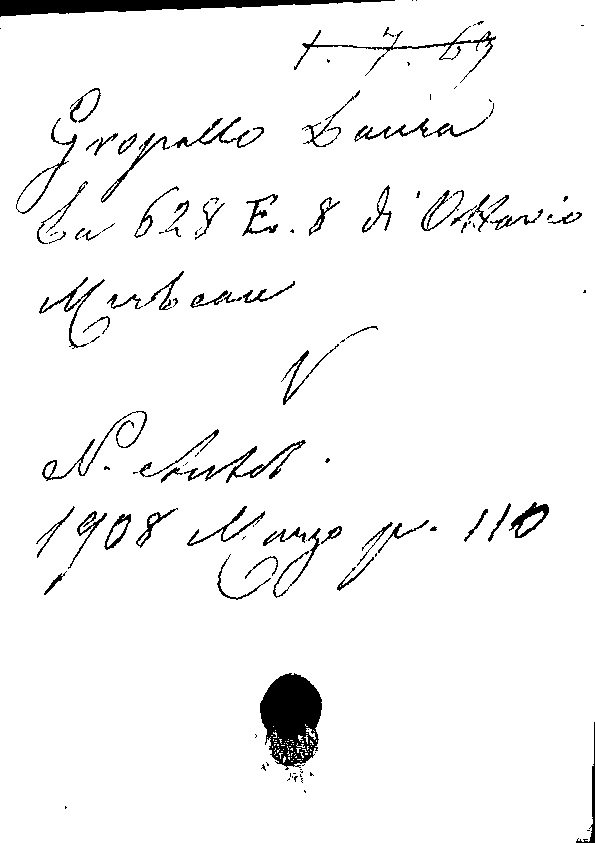 1. 7. 69
Gropallo Laura
La 628 E. 8 di Ottavio
Mirbeau
V
N. Antol.
1908 Marzo p. 110